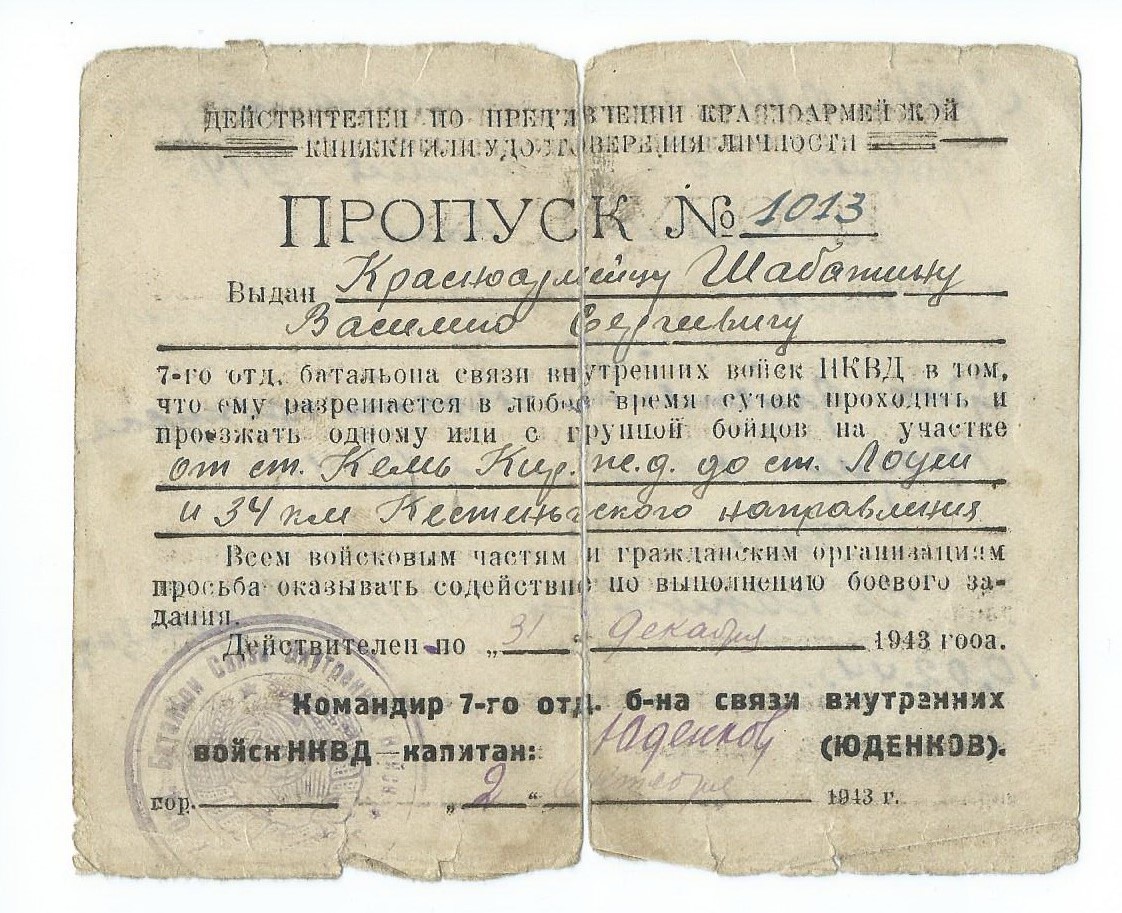 ДЕЙСТВИТЕЛЕН ПО ПРЕД'ЯВЛЕНИИ КРАСНОАРМЕЙСКОЙ
КНИЖКИ ИЛИ УДОСТОВЕРЕНИЯ ЛИЧНОСТИ
ПРОПУСК № 1013
Выдан Красноармейцу Шабашину
Василию Сергеевичу
7-го отд. батальона связи внутренних войск НКВД в том,
что ему разрешается в любое время суток проходить и
проезжать одному или с группой бойцов на участке
от ст. Кемь Кир. ж.д. до ст. Лоухи
и 34 км Кестеньгского направления
Всем войсковым частям и гражданским организациям
просьба оказывать содействие по выполнению боевого за-
дания.
Действителен по „31 " декабря 1943 гооа.
Командир 7-го отд. б-на связи внутренних
войск НКВД —капитан: Юденков (ЮДЕНКОВ).
гор. „ 2 “ 1943 г.
Батальон Связи Внутренних